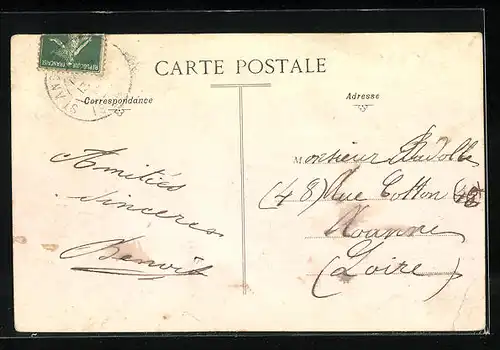 RÉPUBLIQUE FRANÇAISE
CARTE POSTALE
Correspondance
Adresse
Amitiés
Sincères
Benoît
Monsieur
(48) Rue Cotton 48
Roanne
(Loire)